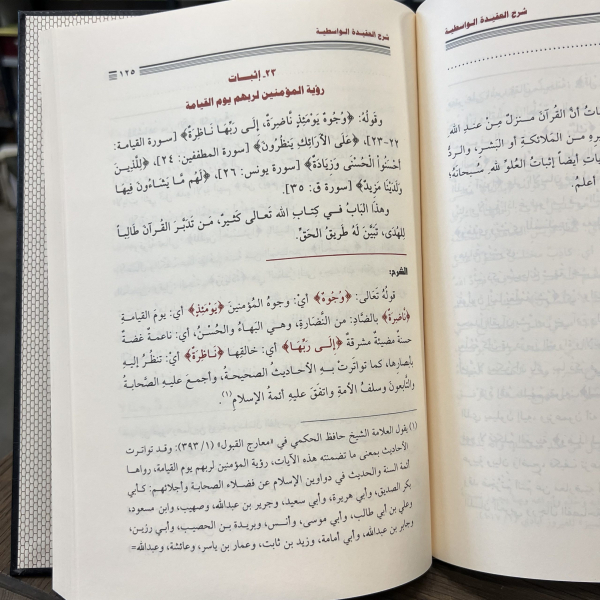 شرح العقيدة الواسطية
١٢٥
٢٣ـ إثبات
رؤية المؤمنين لربهم يوم القيامة
وقولُهُ: ﴿وُجُوهٌ يَوْمَئِذٍ نَّاضِرَةٌ، إِلَى رَبِّهَا نَاظِرَةٌ﴾ [سورة القيامة:
٢٢-٢٣]، ﴿عَلَى الأَرَائِكِ يَنظُرُونَ﴾ [سورة المطففين: ٢٤]، ﴿لِّلَّذِينَ
أَحْسَنُواْ الْحُسْنَى وَزِيَادَةٌ﴾ [سورة يونس: ٢٦]، ﴿لَهُم مَّا يَشَاءُونَ فِيهَا
وَلَدَيْنَا مَزِيدٌ﴾ [سورة ق: ٣٥].
وهذا البَابُ فـي كِتَابِ اللهِ تَعـالى كَثيـرٌ، مَـن تَدَبَّرَ القُـرآنَ طَالِبًا
لِلهُدَى، تَبَيَّنَ لَهُ طَرِيقُ الحَقِّ.
الشرح:
قولُهُ تَعَالَى: ﴿وُجُوهٌ﴾ أيْ: وجوهُ المؤمنينَ ﴿يَوْمَئِذٍ﴾ أي: يومَ القيامةِ
﴿نَاضِرَةٌ﴾ بالضَّادِ: من النَّضَارةِ، وهـي البَهاءُ والحُسْنُ، أي: ناعمةٌ غضةٌ
حسنةٌ مضيئةٌ مشرقةٌ ﴿إِلَـى رَبِّهَا﴾ أي: خالقِها ﴿نَـاظِرَةٌ﴾ أيْ: تنظُرُ إليهِ
بأبصارِها، كما تواتَرتْ بـهِ الأحاديثُ الصحيحـةُ، وأجمـعَ عليـهِ الصَّحابـةُ
والتَّابعونَ وسلفُ الأمةِ واتفَقَ عليهِ أئمةُ الإسلامِ(١).
(١) يقول العلامة الشيخ حافظ الحكمي في «معارج القبول» (١/ ٣٩٣): وقـد تواتـرت
الأحاديث بمعنى ما تضمنته هذه الآيات، رؤية المؤمنين لربهم يوم القيامة، رواها
أئمة السنة والحديث في دواوين الإسلام عن فضلاء الصحابة وأجلائهم: كـأبي
بكر الصديق، وأبي هريرة، وأبي سعيد، وجرير بن عبدالله، وصهيب، وابن مسعود،
وعلي بن أبي طالب، وأبي موسى، وأنـس، وبريـدة بـن الحصيب، وأبي رزيـن،
وجابر بن عبدالله، وأبي أمامة، وزيد بن ثابت، وعمار بن ياسر، وعائشة، وعبدالله=
شرح العقيدة الواسطية
ـاتُ أنَّ القُرآنَ مَنـزَّلٌ مِـنْ عِنـدِ اللهِ
ـرِهِ مـنَ المَلائكـةِ أو البَشَـرِ، والـردُّ
ـاتِ أيضاً إثباتُ العُلوِّ للهِ سُبحانَهُ؛
أعلمُ.